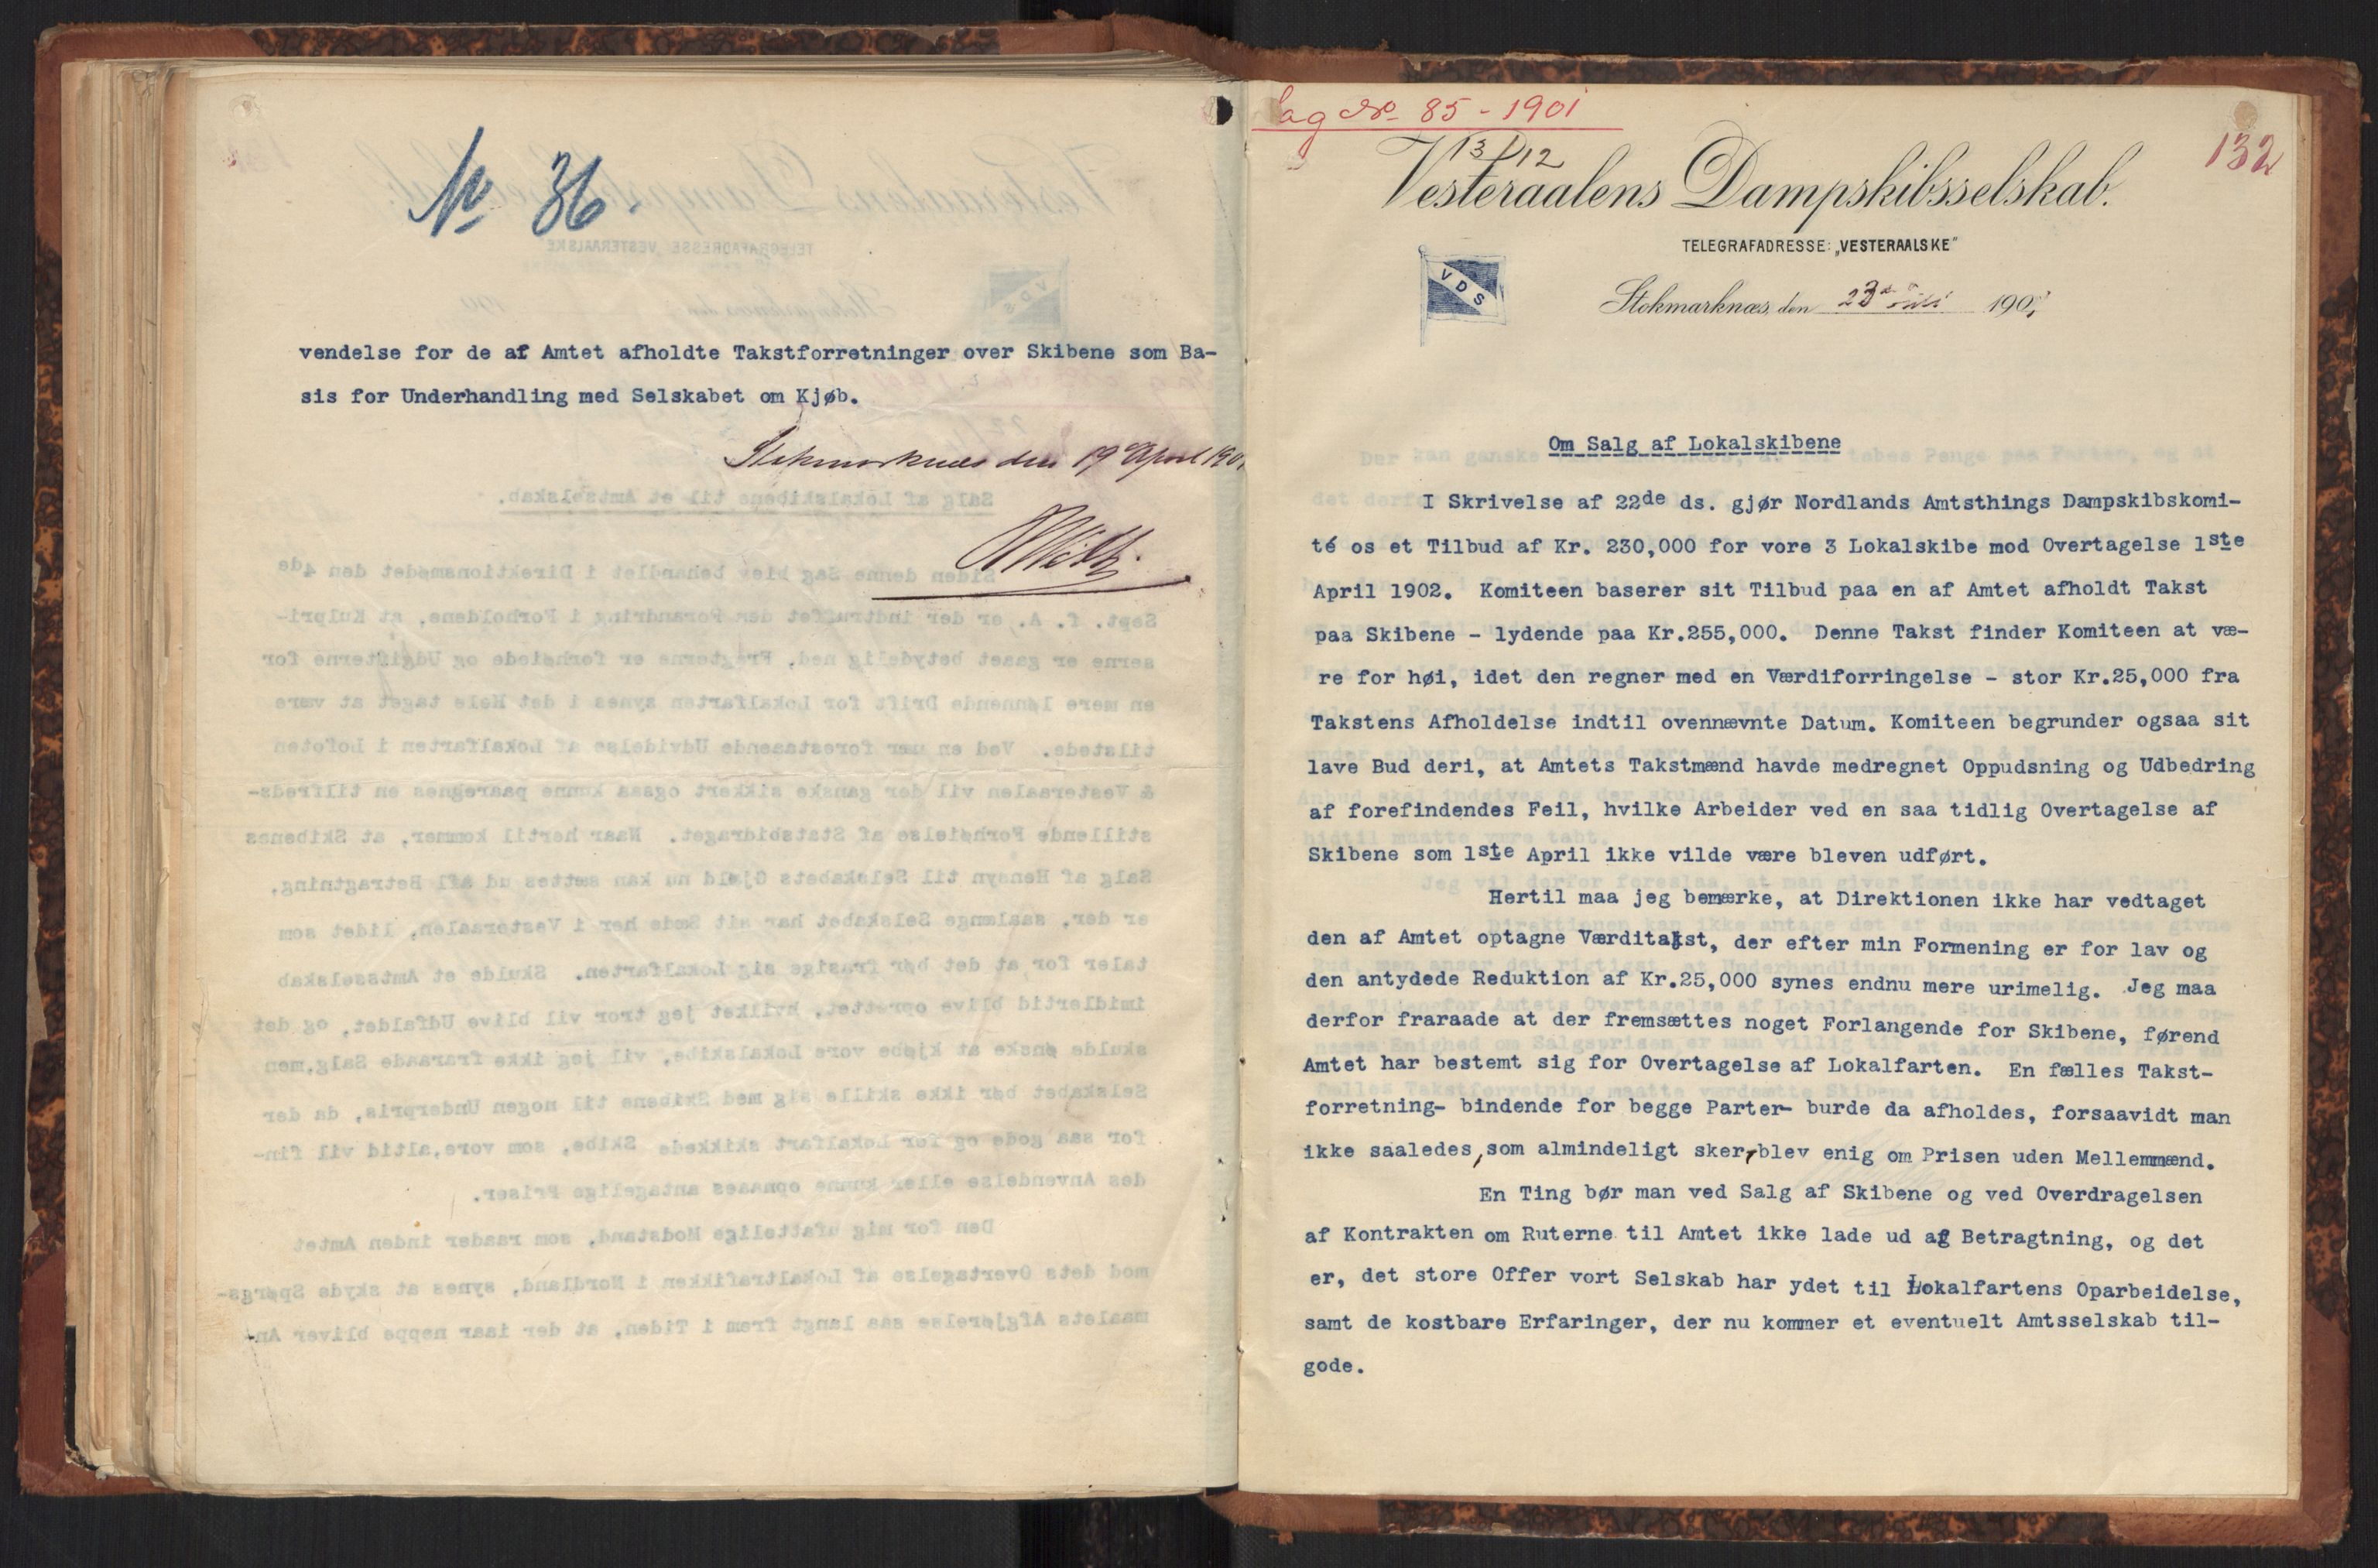 No 36.
vendelse for de af Amtet afholdte Takstforretninger over Skibene som Ba-
sis for Underhandling med Selskabet om Kjøb.
Stokmarknes den 19 April 190
Sag No 85 - 1901
13/12
132
Vesteraalens Dampskibsselskab.
TELEGRAFADRESSE: „VESTERAALSKE"
VDS
Stokmarknæs, den 23de Juli 1901
Om Salg af Lokalskibene
I Skrivelse af 22de ds. gjør Nordlands Amtsthings Dampskibskomi-
té os et Tilbud af Kr. 230,000 for vore 3 Lokalskibe mod Overtagelse 1ste
April 1902. Komiteen baserer sit Tilbud paa en af Amtet afholdt Takst
paa Skibene - lydende paa Kr.255,000. Denne Takst finder Komiteen at væ-
re for høi, idet den regner med en Værdiforringelse - stor Kr.25,000 fra
Takstens Afholdelse indtil ovennævnte Datum. Komiteen begrunder ogsaa sit
lave Bud deri, at Amtets Takstmænd havde medregnet Oppudsning og Udbedring
af forefindendes Feil, hvilke Arbeider ved en saa tidlig Overtagelse af
Skibene som 1ste April ikke vilde være bleven udført.
Hertil maa jeg bemærke, at Direktionen ikke har vedtaget
den af Amtet optagne Værditakst, der efter min Formening er for lav og
den antydede Reduktion af Kr.25,000 synes endnu mere urimelig. Jeg maa
derfor fraraade at der fremsættes noget Forlangende for Skibene, førend
Amtet har bestemt sig for Overtagelse af Lokalfarten. En fælles Takst-
forretning- bindende for begge Parter- burde da afholdes, forsaavidt man
ikke saaledes, som almindeligt sker, blev enig om Prisen uden Mellemmænd.
En Ting bør man ved Salg af Skibene og ved Overdragelsen
af Kontrakten om Ruterne til Amtet ikke lade ud af Betragtning, og det
er, det store Offer vort Selskab har ydet til Lokalfartens Oparbeidelse,
samt de kostbare Erfaringer, der nu kommer et eventuelt Amtsselskab til-
gode.